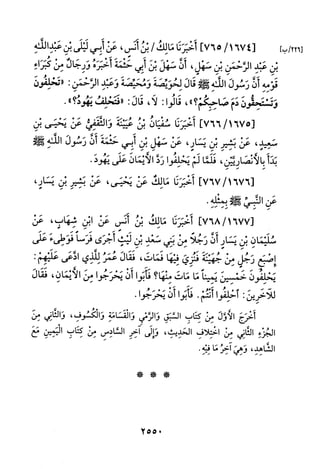 [٧٦٥/١٦٧٤] أَخْبَرَنَا مَالِكُ بْنُ أَنَس، عَنْ أَبِي لَيْلَى بْنِ عَبْدِاللَّهِ
[٢٢٦/ب]
بْنِ عَبْدِ الرَّحْمَنِ بْنِ سَهْلٍ، أَنَّ سَهْلَ بْنَ أَبِي حَثْمَةَ أَخْبَرَهُ وَرِجَالٌ مِنْ كُبَرَاءِ
قَوْمِهِ أَنَّ رَسُولَ اللَّهِ ﷺ قَالَ لِحُوَيِّصَةَ وَمُحَيِّصَةَ وَعَبْدِ الرَّحْمَنِ: «تَحْلِفُونَ
وَتَسْتَحِقُّونَ دَمَ صَاحِبِكُمْ؟»، قَالُوا: لَا، قَالَ: «فَتَحْلِفُ يَهُودُ؟».
[٧٦٦/١٦٧٥] أَخْبَرَنَا سُفْيَانُ بْنُ عُيَيْنَةَ وَالثَّقَفِيُّ عَنْ يَحْيَـى بْنِ
سَعِيدٍ، عَنْ بُشَيْرِ بْنِ يَسَارٍ، عَنْ سَهْلِ بْنِ أَبِي حَثْمَةَ أَنَّ رَسُولَ اللَّهِ ﷺ
بَدَأَ بِالْأَنْصَارِيِّينَ، فَلَمَّا لَمْ يَحْلِفُوا رَدَّ الْأَيْمَانَ عَلَى يَهُودَ.
[٧٦٧/١٦٧٦] أَخْبَرَنَا مَالِكٌ عَنْ يَحْيَـى، عَنْ بُشَيْرِ بْنِ يَسَارٍ،
عَنِ النَّبِيِّ ﷺ بِمِثْلِهِ.
[٧٦٨/١٦٧٧] أَخْبَرَنَا مَالِكُ بْنُ أَنَسٍ عَنْ ابْنِ شِهَابٍ، عَنْ
سُلَيْمَانَ بْنِ يَسَارٍ أَنَّ رَجُلًا مِنْ بَنِي سَعْدِ بْنِ لَيْثٍ أَجْرَى فَرَساً فَوَطِىءَ عَلَى
إِصْبَعِ رَجُلٍ مِنْ جُهَيْنَةَ فَنُزِيَ فِيْهَا فَمَاتَ، فَقَالَ عُمَرُ لِلَّذِي ادَّعَى عَلَيْهِمْ:
يَحْلِفُونَ خَمْسِينَ يَمِيناً مَا مَاتَ مِنْهَا؟ فَأَبَوْا أَنْ يَحْرَجُوا مِنَ الْأَيْمَانِ، فَقَالَ
لِلْآخَرِينَ: احْلِفُوا أَنْتُمْ. فَأَبَوْا أَنْ يَحْرَجُوا.
أَخْرَجَ الْأَوَّلَ مِنْ كِتَابِ السَّبَقِ وَالرَّمْيِ وَالْقَسَامَةِ وَالْكُسُوفِ، وَالثَّانِي مِنَ
الْجُزْءِ الثَّانِي مِنَ اخْتِلَافِ الْحَدِيثِ، وَإِلَى آخِرِ السَّادِسِ مِنْ كِتَابِ الْيَمِينِ مَعَ
الشَّاهِدِ، وَهِيَ آخِرُ مَا فِيْهِ.
* * *
٢٥٥٠